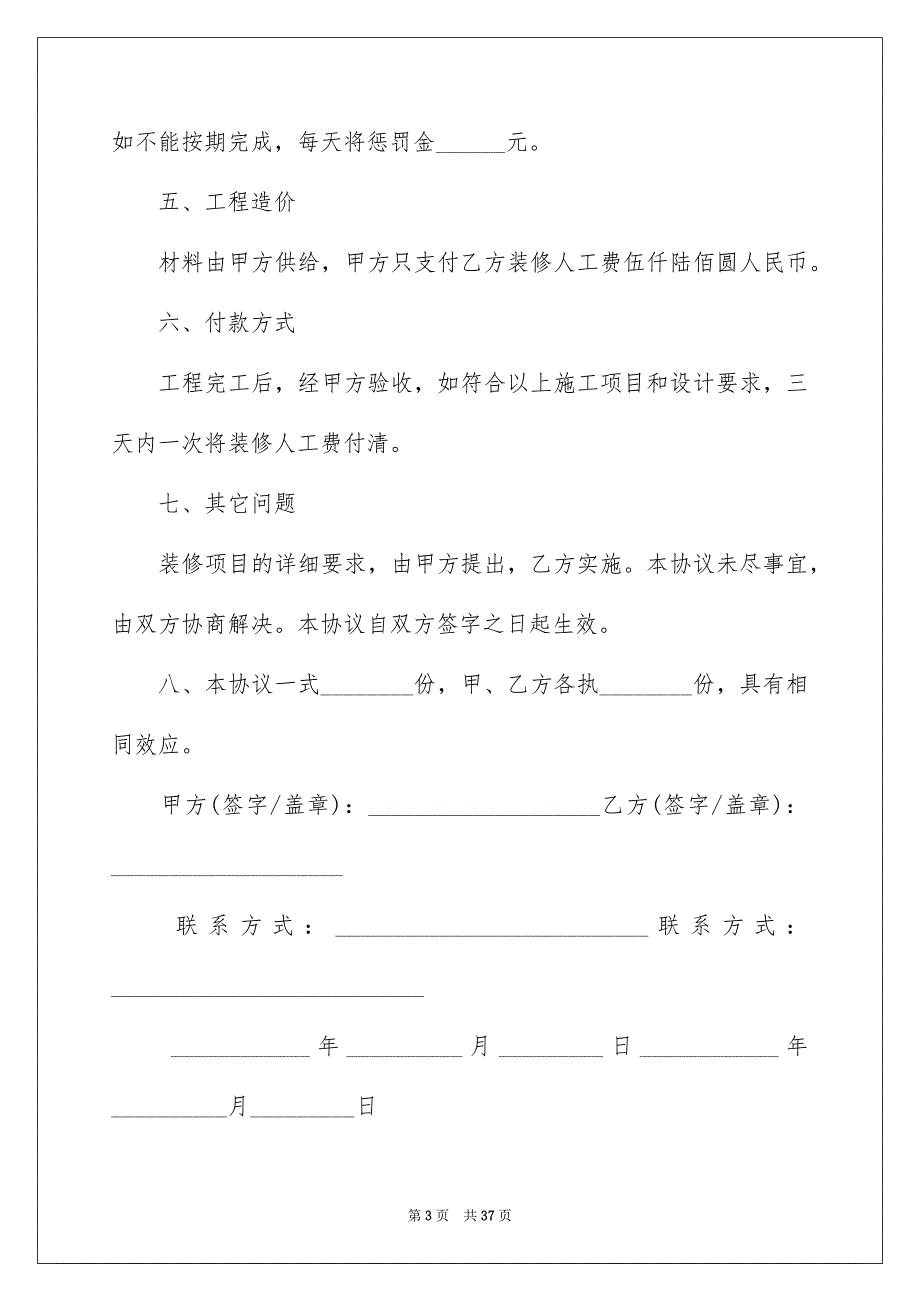 如不能按期完成，每天将惩罚金______元。
五、工程造价
材料由甲方供给，甲方只支付乙方装修人工费伍仟陆佰圆人民币。
六、付款方式
工程完工后，经甲方验收，如符合以上施工项目和设计要求，三
天内一次将装修人工费付清。
七、其它问题
装修项目的详细要求，由甲方提出，乙方实施。本协议未尽事宜，
由双方协商解决。本协议自双方签字之日起生效。
八、本协议一式________份，甲、乙方各执________份，具有相
同效应。
甲方(签字/盖章)：____________________乙方(签字/盖章)：
____________________
联系方式：___________________________联系方式：
___________________________
____________年__________月_________日____________年
__________月_________日
第 3 页 共 37 页